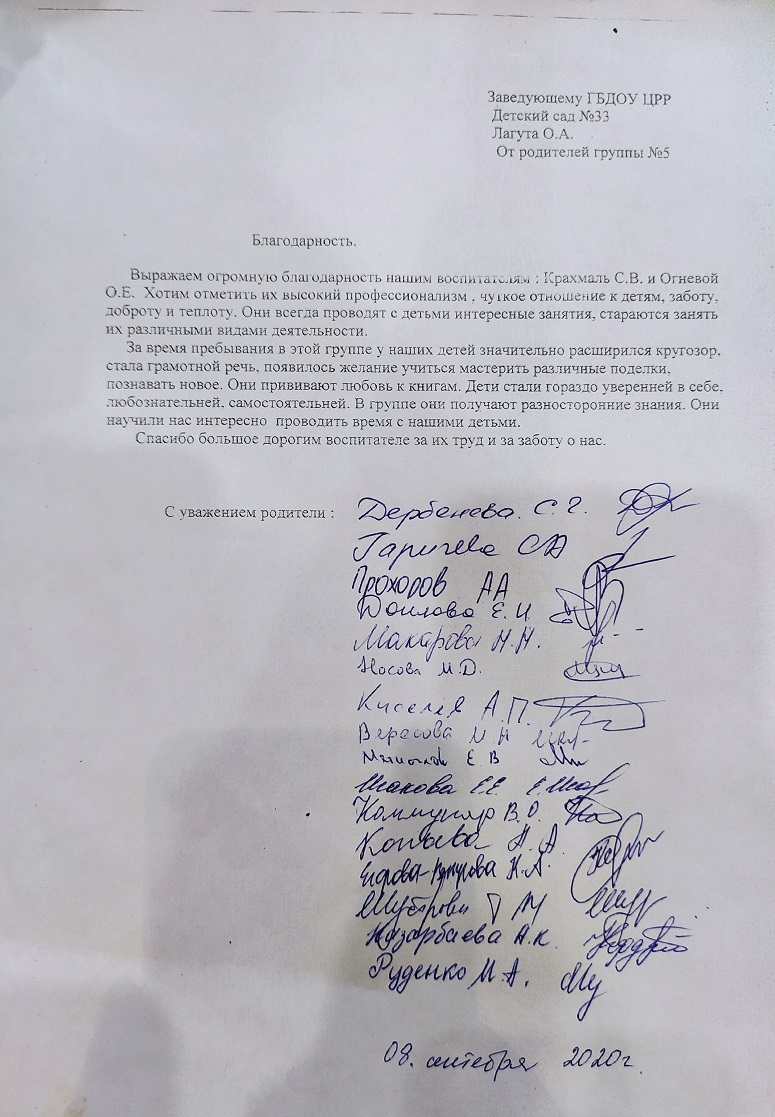 Заведующему ГБДОУ ЦРР
Детский сад №33
Лагута О.А.
От родителей группы №5
Благодарность.
Выражаем огромную благодарность нашим воспитателям : Крахмаль С.В. и Огневой
О.Е. Хотим отметить их высокий профессионализм , чуткое отношение к детям, заботу,
доброту и теплоту. Они всегда проводят с детьми интересные занятия, стараются занять
их различными видами деятельности.
За время пребывания в этой группе у наших детей значительно расширился кругозор,
стала грамотной речь, появилось желание учиться мастерить различные поделки,
познавать новое. Они прививают любовь к книгам. Дети стали гораздо уверенней в себе,
любознательней, самостоятельней. В группе они получают разносторонние знания. Они
научили нас интересно проводить время с нашими детьми.
Спасибо большое дорогим воспитателе за их труд и за заботу о нас.
С уважением родители : Дербенева. С. Г.
СА
Прохоров АА
Е. И
Макарова Н.Н.
Носова М.D.
Киселёв А.П.
Вересова М Н
Е. В
Шакова Е.Е.
Коммуняр В.О.
Н. А
Н.А.
Назарбаева А.К.
Руденко М.А.
08. сентября 2020г.